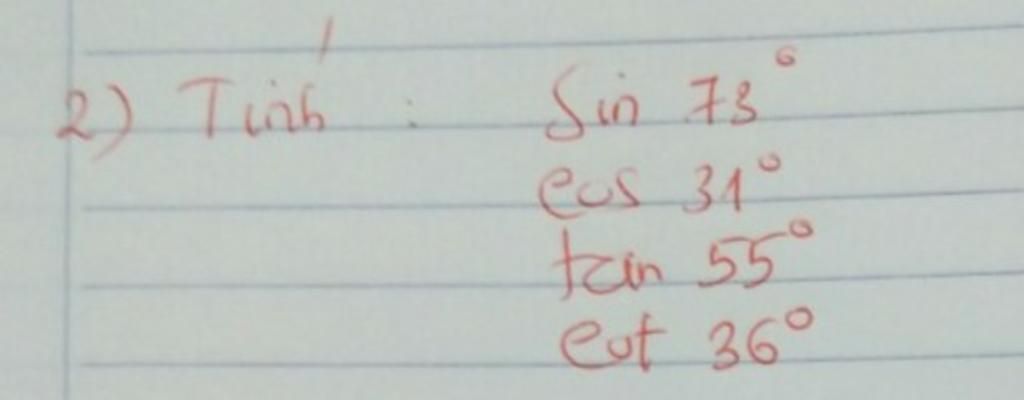 2) Tính : Sin 73°
cos 31°
tan 55°
cot 36°